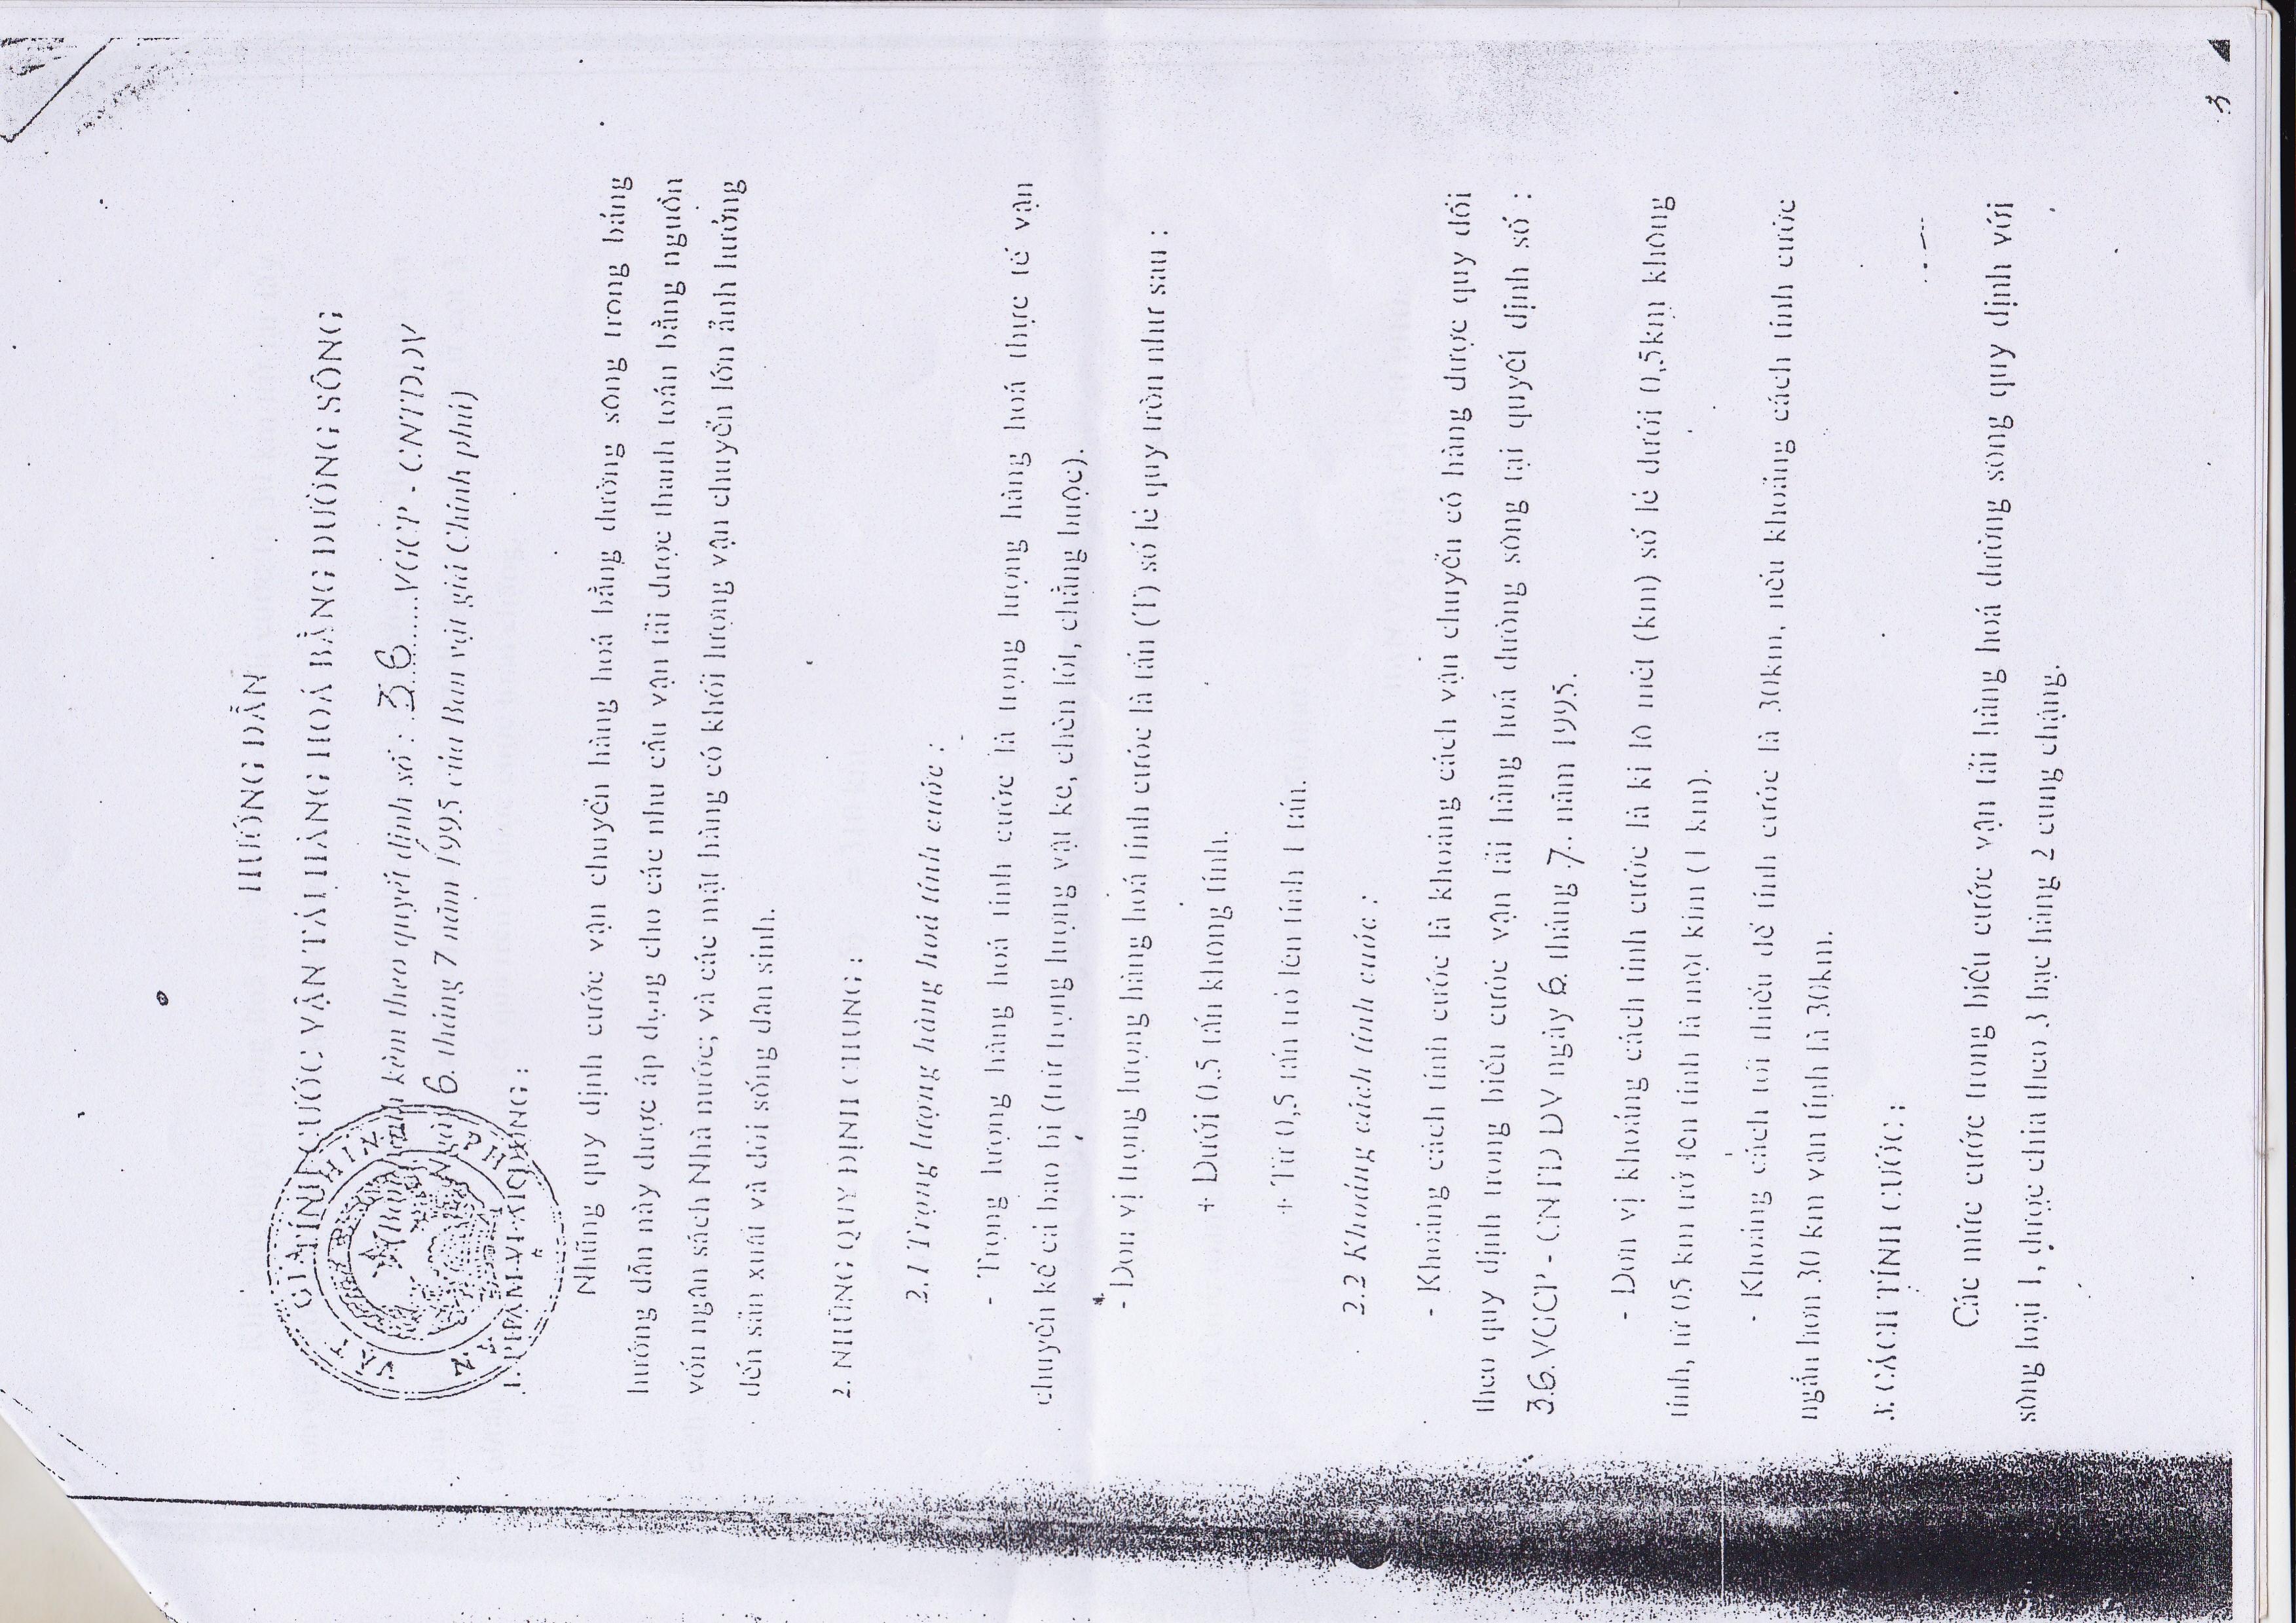 HƯỚNG DẪN
TÍNH CƯỚC VẬN TẢI HÀNG HOÁ BẰNG ĐƯỜNG SÔNG
(Ban hành kèm theo quyết định số : 36 VGCP - CNTDDV
ngày 6 tháng 7 năm 1995 của Ban vật giá Chính phủ)
1. PHẠM VI ÁP DỤNG :
Những quy định cước vận chuyển hàng hoá bằng đường sông trong bảng
hướng dẫn này được áp dụng cho các nhu cầu vận tải được thanh toán bằng nguồn
vốn ngân sách Nhà nước; và các mặt hàng có khối lượng vận chuyển lớn ảnh hưởng
đến sản xuất và đời sống dân sinh.
2. NHỮNG QUY ĐỊNH CHUNG :
2.1 Trọng lượng hàng hoá tính cước :
- Trọng lượng hàng hoá tính cước là trọng lượng hàng hoá thực tế vận
chuyển kể cả bao bì (trừ trọng lượng vật kê, chèn lót, chằng buộc).
- Đơn vị trọng lượng hàng hoá tính cước là tấn (T) số lẻ quy tròn như sau :
+ Dưới 0,5 tấn không tính.
+ Từ 0,5 tấn trở lên tính 1 tấn.
2.2 Khoảng cách tính cước :
- Khoảng cách tính cước là khoảng cách vận chuyển có hàng được quy đổi
theo quy định trong biểu cước vận tải hàng hoá đường sông tại quyết định số :
36.VGCP - CNTD DV ngày 6. tháng 7.. năm 1995.
- Đơn vị khoảng cách tính cước là ki lô mét (km) số lẻ dưới 0,5km không
tính, từ 05 km trở lên tính là một kilm (1 km).
- Khoảng cách tối thiểu để tính cước là 30km, nếu khoảng cách tính cước
ngắn hơn 30 km vẫn tính là 30km.
3. CÁCH TÍNH CƯỚC :
Các mức cước trong biểu cước vận tải hàng hoá đường sông quy định với
sông loại 1, được chia theo 3 bậc hàng 2 cung chặng.
3